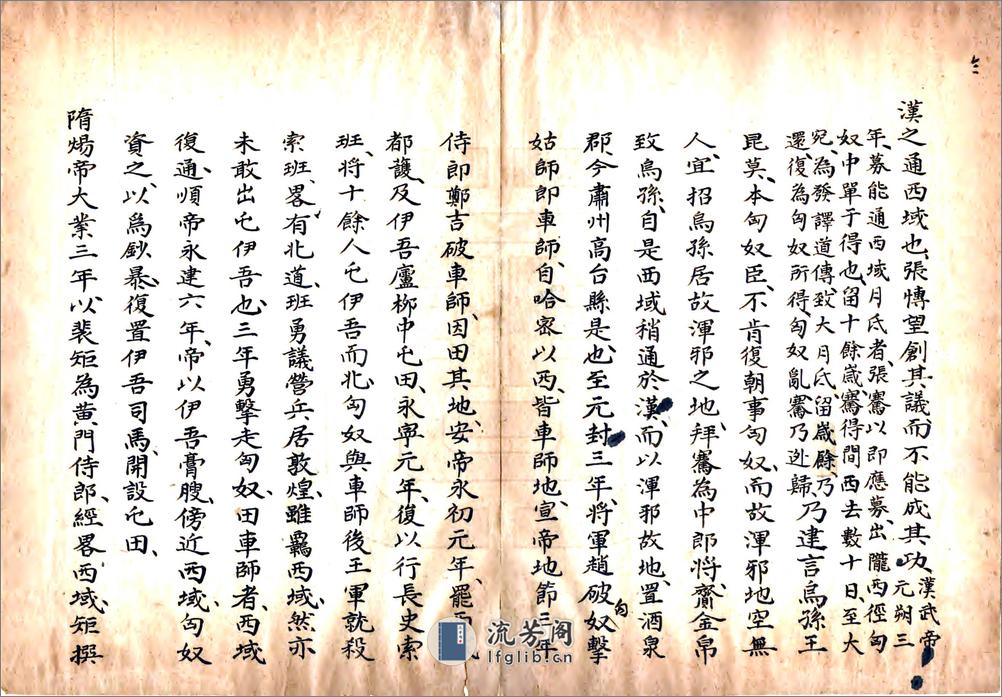 漢之通西域也、張愽望創其議而不能成其功、漢武帝
元朔三
年、募能通西域月氏者、張騫以即應募、出隴西徑匈
奴中單于得也、留十餘歲騫得間西去數十日、至大
宛、為發譯道傳致大月氏、留歲餘、乃
還、復為匈奴所得、匈奴亂、騫乃迯歸、乃建言烏孫王
昆莫、本匈奴臣、不肯復朝事匈奴、而故渾邪地空無
人、宜招烏孫居故渾邪之地、拜騫為中郎將、齎金帛
致烏孫、自是西域稍通於漢、而以渾邪故地、置酒泉
郡、今肅州高台縣是也、至元封三年、將軍趙破奴匈擊
姑師即車師、自哈密以西、皆車師地、宣帝地節三年
侍郎鄭吉破車師、因田其地、安帝永初元年、罷西
都護、及伊吾廬柳中屯田、永寧元年、復以行長史索
班、将十餘人屯伊吾而北匈奴與車師後王軍就殺
索班、畧有北道、班勇議營兵居敦煌、雖羈西域、然亦
未敢出屯伊吾也、三年勇擊走匈奴、田車師者、西域
復通、順帝永建六年、帝以伊吾膏腴、傍近西域、匈奴
資之、以為鈔暴、復置伊吾司馬、開設屯田、
隋煬帝大業三年、以裴矩為黄門侍郎、經畧西域、矩撰
流芳阁
lfglib.cn